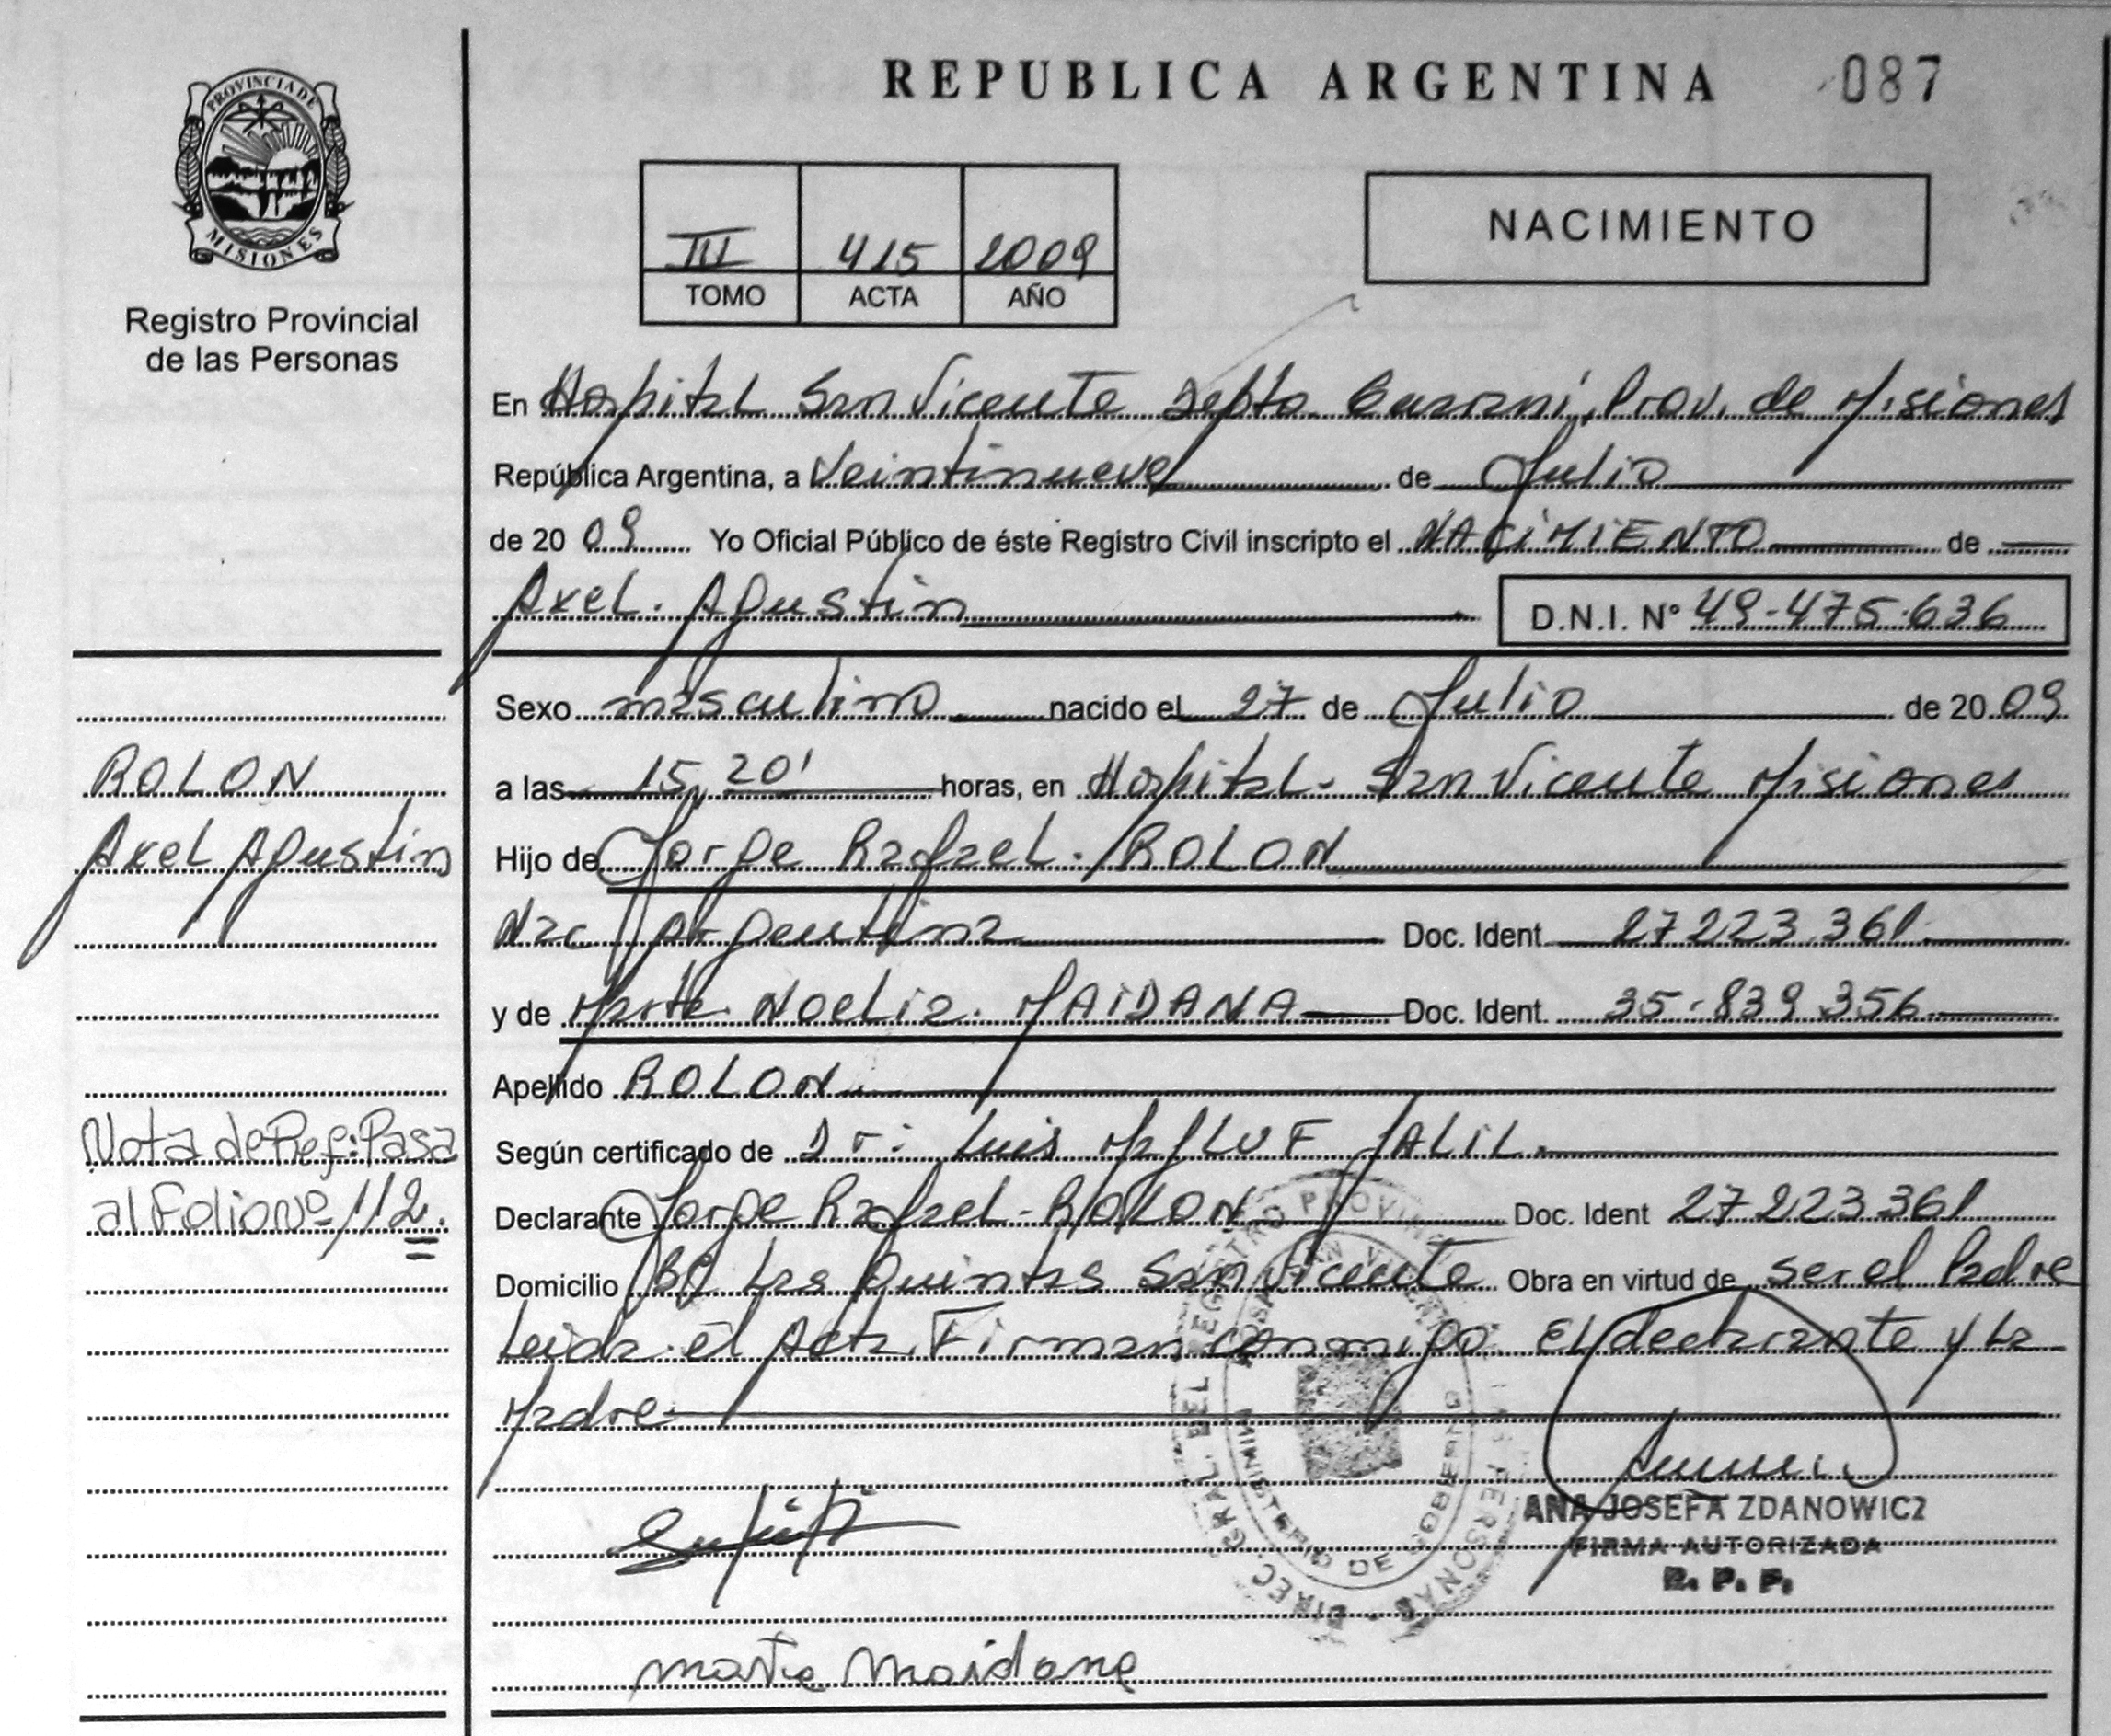 REPUBLICA ARGENTINA 087
PROVINCIA DE
MISIONES
Registro Provincial
de las Personas
III 415 2009
TOMO ACTA AÑO
NACIMIENTO
En Hospital San Vicente Depto Guarani, Prov. de Misiones
República Argentina, a Veintinueve de Julio
de 20 09 Yo Oficial Público de éste Registro Civil inscripto el NACIMIENTO de
Axel. Agustin D.N.I. Nº 49-475.636
Sexo masculino nacido el 27 de Julio de 20 09
a las 15,20' horas, en Hospital - San Vicente Misiones
Hijo de Jorge Rafael. ROLON
Nac Argentina Doc. Ident. 27223.361
y de Marta. Noelia. MAIDANA Doc. Ident. 35-839356
Apellido ROLON
Según certificado de Dr: Luis MALUF JALIL
Declarante Jorge Rafael - ROLON Doc. Ident 27223361
Domicilio Bº Las Quintas San Vicente Obra en virtud de ser el Padre
Leida el Acta, Firman conmigo: El declarante y La
Madre
ROLON
Axel Agustin
Nota de Ref: Pasa
al Folio Nº 112.
DIREC. GRAL. DEL REGISTRO PROVINCIAL DE LAS PERSONAS
MINISTERIO DE GOBIERNO
ANA JOSEFA ZDANOWICZ
FIRMA AUTORIZADA
R. P. P.
marta Maidana